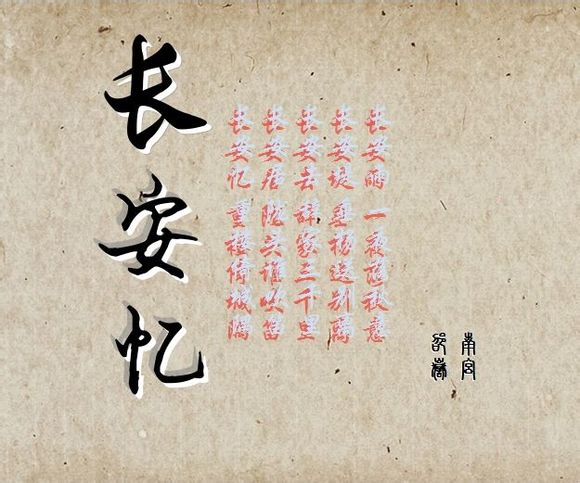 长安忆
长安雨 一夜落秋意
长安堤 垂杨远别离
长安去 辞家三千里
长安居 陇头谁吹笛
长安忆 重楼倚城隅
南宫